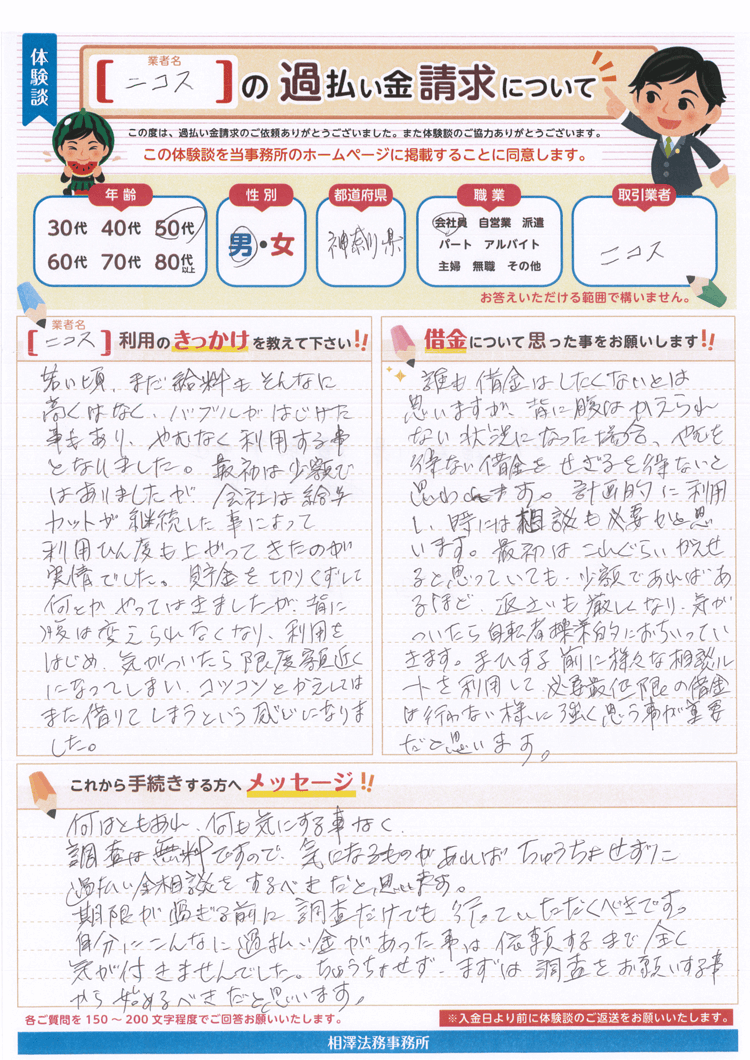 体験談
業者名
【ニコス】の過払い金請求について
この度は、過払い金請求のご依頼ありがとうございました。また体験談のご協力ありがとうございます。
この体験談を当事務所のホームページに掲載することに同意します。
年齢
30代 40代 50代
60代 70代 80代以上
性別
男・女
都道府県
神奈川県
職業
会社員 自営業 派遣
パート アルバイト
主婦 無職 その他
取引業者
ニコス
お答えいただける範囲で構いません。
業者名
【ニコス】利用のきっかけを教えて下さい!!
若い頃、まだ給料もそんなに
高くはなく、バブルがはじけた
事もあり、やむなく利用する事
となりました。最初は少額で
はありましたが、会社は給与
カットが継続した事によって
利用ひん度も上がってきたのが
実情でした。貯金を切りくずして
何とかやっては来ましたが、背に
腹は変えられなくなり、利用を
はじめ、気がついたら限度額近く
になってしまい、コツコツとかえしては
また借りてしまうという感じになりま
した。
借金について思った事をお願いします!!
誰も借金はしたくないとは
思いますが、背に腹はかえられ
ない状況になった場合、やむを
得ない借金をせざるを得ないと
思われます。計画的に利用
し、時には相談も必要かと思
います。最初はこれぐらいかえせ
ると思っていても、少額であればあ
るほど、返済いも厳しくなり、気が
ついたら自転者操業的におちいってい
きます。まひする前に様々な相談ル
ートを利用して必要最低限の借金
は行わない様に強く思う事が重要
だと思います。
これから手続きする方へメッセージ!!
何はともあれ、何も気にする事なく
調査は無料ですので、気になるものがあれば ちゅうちょせずに
過払い金相談をするべきだと思います。
期限が過ぎる前に調査だけでも行っていただくべきです。
自分にこんなに過払い金があった事は依頼するまで全く
気が付きませんでした。ちゅうちょせず、まずは調査をお願いする事
から始めるべきだと思います。
各ご質問を150〜200文字程度でご回答お願いいたします。
※入金日より前に体験談のご返送をお願いいたします。
相澤法務事務所